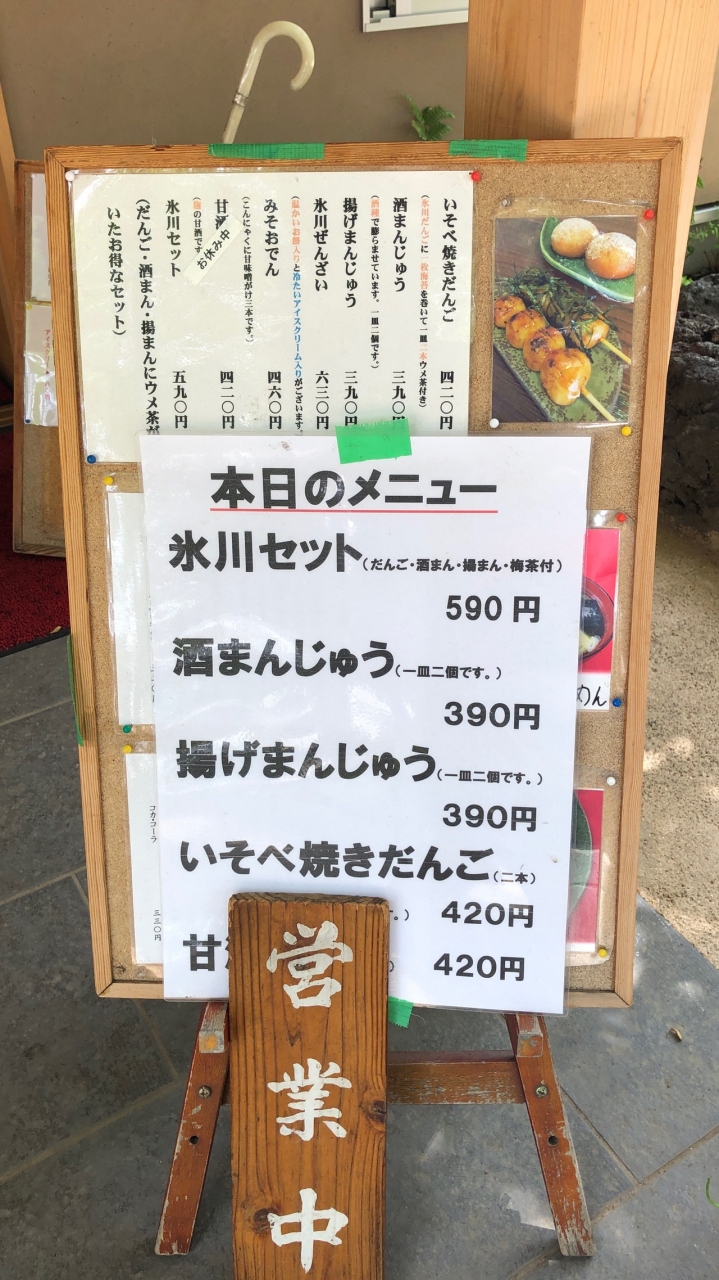 いそべ焼きだんご 四二〇円
(氷川だんごに一枚海苔を巻いて一皿二本ウメ茶付き)
酒まんじゅう 三九〇円
(酒種で膨らませています。一皿二個です。)
揚げまんじゅう 三九〇円
氷川ぜんざい 六三〇円
(温かいお餅入りと冷たいアイスクリーム入りがございます。
みそおでん 四六〇円
(こんにゃくに甘味噌がけ三本です。)
甘酒 四二〇円
お休み中
の甘酒です
氷川セット 五九〇円
(だんご・酒まん・揚まんにウメ茶が
いたお得なセット)
本日のメニュー
氷川セット(だんご・酒まん・揚まん・梅茶付)
590円
酒まんじゅう(一皿二個です。)
390円
揚げまんじゅう(一皿二個です。)
390円
いそべ焼きだんご(二本)
。) 420円
甘 ) 420円
めん
コカ・コーラ
三三〇円
営業中